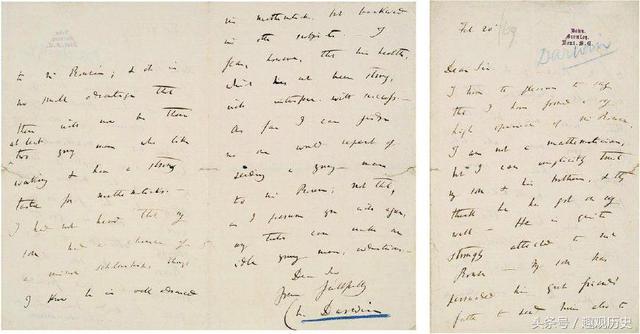 Feb 20 /69
Down.
Kent. S.E.
Darwin
Dear Sir
I have the pleasure to say
that I have formed a very
high opinion of
I am not a mathematician,
but I can implicitly trust
my son & his brothers, & they
think he has got on very
well — He is quite
strongly attached to
My son has
persuaded his great friend's
father to send him also to
to Mr
no small advantage that
there will be then
at least
two young men who like
working & have a strong
taste for mathematics.—
I had not heard that my
son had a chance of
a minor scholarship, though
I know he is well advanced
in mathematics, but backward
in other subjects — I
fear, however, that his health,
which has not been strong,
will interfere with success.—
As far as I can judge
no one would repent of
sending a young man
to Mr not that,
as I presume you will agree,
any tutor can make an
idle young man, industrious.—
Dear Sir
Yours faithfully
Ch. Darwin
头条号 / 趣观历史